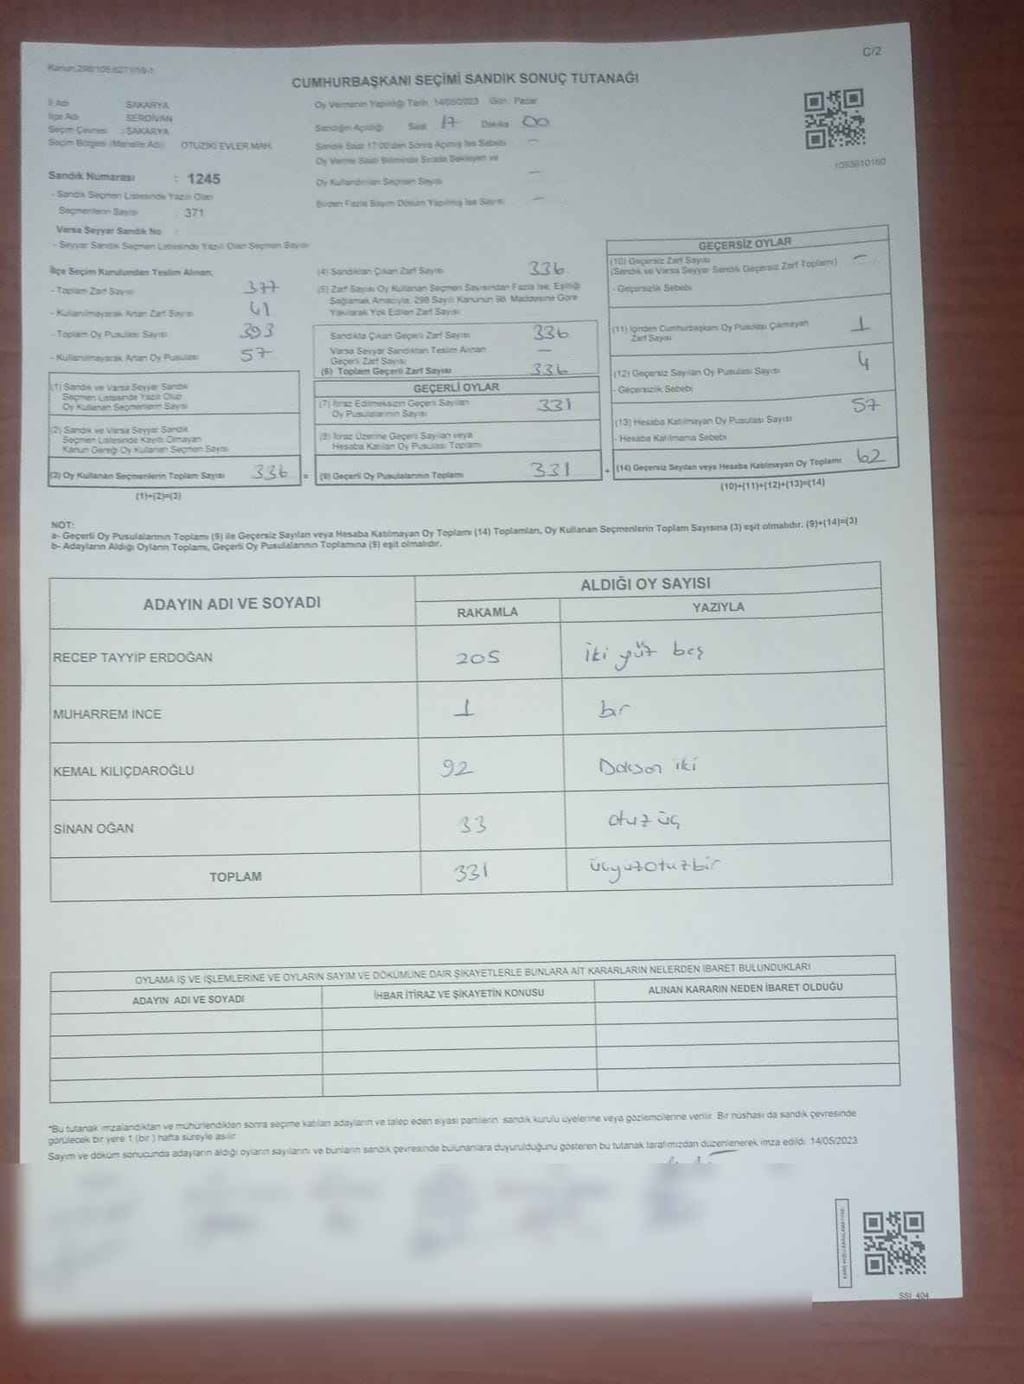 Kanun:298/105,6271/19-1
C/2
CUMHURBAŞKANI SEÇİMİ SANDIK SONUÇ TUTANAĞI
İl Adı SAKARYA
İlçe Adı SERDİVAN
Seçim Çevresi : SAKARYA
Seçim Bölgesi (Mahalle Adı) OTUZİKİ EVLER MAH.
Oy Vermenin Yapıldığı Tarih: 14/05/2023 Gün: Pazar
Sandığın Açıldığı Saat 17 Dakika 00
Sandık Saat 17:00'den Sonra Açılmış İse Sebebi —
Oy Verme Saati Bitiminde Sırada Bekleyen ve
Oy Kullandırılan Seçmen Sayısı —
Birden Fazla Sayım Döküm Yapılmış İse Sayısı —
Sandık Numarası : 1245
- Sandık Seçmen Listesinde Yazılı Olan
Seçmenlerin Sayısı 371
Varsa Seyyar Sandık No :
- Seyyar Sandık Seçmen Listesinde Yazılı Olan Seçmen Sayısı
İlçe Seçim Kurulundan Teslim Alınan;
- Toplam Zarf Sayısı 377
- Kullanılmayarak Artan Zarf Sayısı 41
- Toplam Oy Pusulası Sayısı 393
- Kullanılmayarak Artan Oy Pusulası 57
(1) Sandık ve Varsa Seyyar Sandık
Seçmen Listesinde Yazılı Olup
Oy Kullanan Seçmenlerin Sayısı
(2) Sandık ve Varsa Seyyar Sandık
Seçmen Listesinde Kayıtlı Olmayan
Kanun Gereği Oy Kullanan Seçmen Sayısı
(3) Oy Kullanan Seçmenlerin Toplam Sayısı 336 =
(1)+(2)=(3)
(4) Sandıktan Çıkan Zarf Sayısı 336
(5) Zarf Sayısı Oy Kullanan Seçmen Sayısından Fazla İse, Eşitliği
Sağlamak Amacıyla, 298 Sayılı Kanunun 98. Maddesine Göre
Yakılarak Yok Edilen Zarf Sayısı
Sandıkta Çıkan Geçerli Zarf Sayısı 336
Varsa Seyyar Sandıktan Teslim Alınan
Geçerli Zarf Sayısı —
(6) Toplam Geçerli Zarf Sayısı 336
GEÇERLİ OYLAR
(7) İtiraz Edilmeksizin Geçerli Sayılan
Oy Pusulalarının Sayısı 331
(8) İtiraz Üzerine Geçerli Sayılan veya
Hesaba Katılan Oy Pusulası Toplamı
(9) Geçerli Oy Pusulalarının Toplamı 331 +
GEÇERSİZ OYLAR
(10) Geçersiz Zarf Sayısı
(Sandık ve Varsa Seyyar Sandık Geçersiz Zarf Toplamı) —
- Geçersizlik Sebebi
(11) İçinden Cumhurbaşkanı Oy Pusulası Çıkmayan
Zarf Sayısı 1
(12) Geçersiz Sayılan Oy Pusulası Sayısı 4
- Geçersizlik Sebebi
(13) Hesaba Katılmayan Oy Pusulası Sayısı 57
- Hesaba Katılmama Sebebi
(14) Geçersiz Sayılan veya Hesaba Katılmayan Oy Toplamı 62
(10)+(11)+(12)+(13)=(14)
NOT:
a- Geçerli Oy Pusulalarının Toplamı (9) ile Geçersiz Sayılan veya Hesaba Katılmayan Oy Toplamı (14) Toplamları, Oy Kullanan Seçmenlerin Toplam Sayısına (3) eşit olmalıdır. (9)+(14)=(3)
b- Adayların Aldığı Oyların Toplamı, Geçerli Oy Pusulalarının Toplamına (9) eşit olmalıdır.
ADAYIN ADI VE SOYADI
ALDIĞI OY SAYISI
RAKAMLA YAZIYLA
RECEP TAYYİP ERDOĞAN 205 iki yüz beş
MUHARREM İNCE 1 bir
KEMAL KILIÇDAROĞLU 92 Doksan iki
SİNAN OĞAN 33 otuz üç
TOPLAM 331 üçyüzotuzbir
OYLAMA İŞ VE İŞLEMLERİNE VE OYLARIN SAYIM VE DÖKÜMÜNE DAİR ŞİKAYETLERLE BUNLARA AİT KARARLARIN NELERDEN İBARET BULUNDUKLARI
ADAYIN ADI VE SOYADI İHBAR İTİRAZ VE ŞİKAYETİN KONUSU ALINAN KARARIN NEDEN İBARET OLDUĞU
*Bu tutanak imzalandıktan ve mühürlendikten sonra seçime katılan adayların ve talep eden siyasi partilerin sandık kurulu üyelerine veya gözlemcilerine verilir. Bir nüshası da sandık çevresinde
görülecek bir yere 1 (bir) hafta süreyle asılır.
Sayım ve döküm sonucunda adayların aldığı oyların sayılarını ve bunların sandık çevresinde bulunanlara duyurulduğunu gösteren bu tutanak tarafımızdan düzenlenerek imza edildi. 14/05/2023
SSI_404